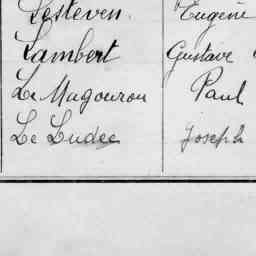 Lesteven Eugène
Lambert Gustave
Le Magourou Paul
Le Ludec Joseph